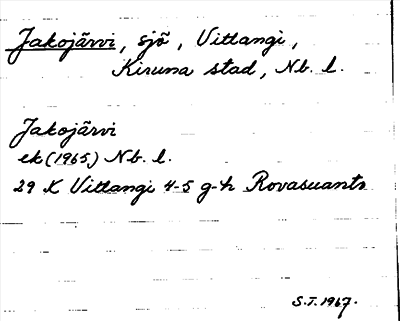 Jakojärvi, sjö, Vittangi,
Kiruna stad, Nb. l.
Jakojärvi
ek (1965) Nb. l.
29 K Vittangi 4-5 g-h Rovasuanto
S.T. 1967.